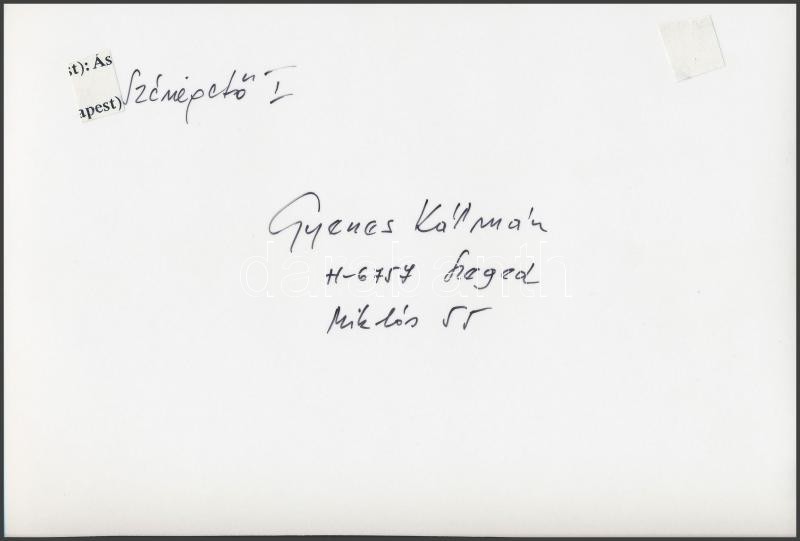 st): Ás
apest)
Szénégető I
Gyenes Kálmán
H-6757 Szeged
Miklós 55
darabanth